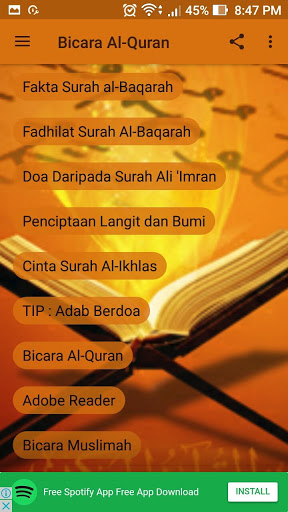 45% 8:47 PM
Bicara Al-Quran
Fakta Surah al-Baqarah
Fadhilat Surah Al-Baqarah
Doa Daripada Surah Ali 'Imran
Penciptaan Langit dan Bumi
Cinta Surah Al-Ikhlas
TIP : Adab Berdoa
Bicara Al-Quran
Adobe Reader
Bicara Muslimah
Free Spotify App Free App Download
INSTALL